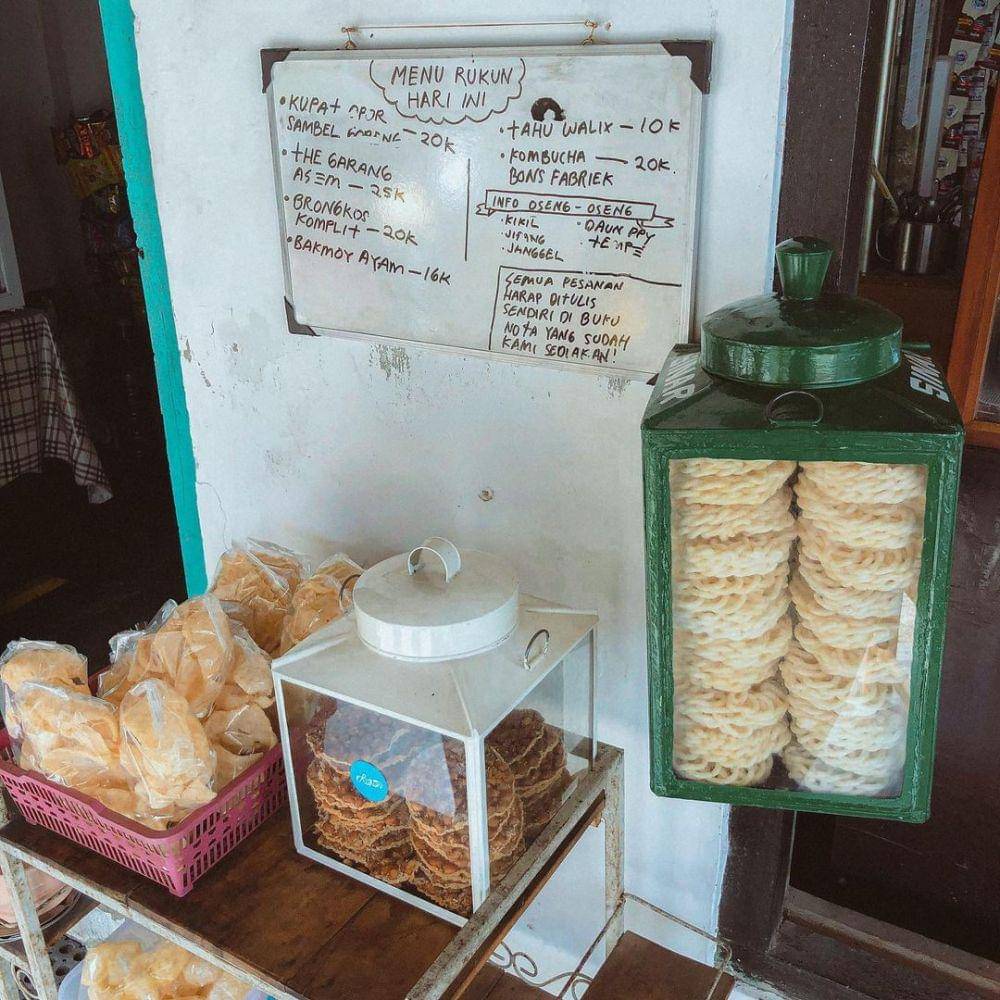 MENU RUKUN
HARI INI
• KUPAT OPOR
SAMBEL GORENG — 20K
• THE GARANG
ASEM — 25K
• BRONGKOS
KOMPLIT — 20K
• BAKMOY AYAM — 16K
• TAHU WALIK — 10K
• KOMBUCHA — 20K.
BONS FABRIEK
INFO OSENG-OSENG
• KIKIL
• JIPANG
• JANGGEL
• DAUN PPY
• TEMPE
SEMUA PESANAN
HARAP DITULIS
SENDIRI DI BUKU
NOTA YANG SUDAH
KAMI SEDIAKAN!